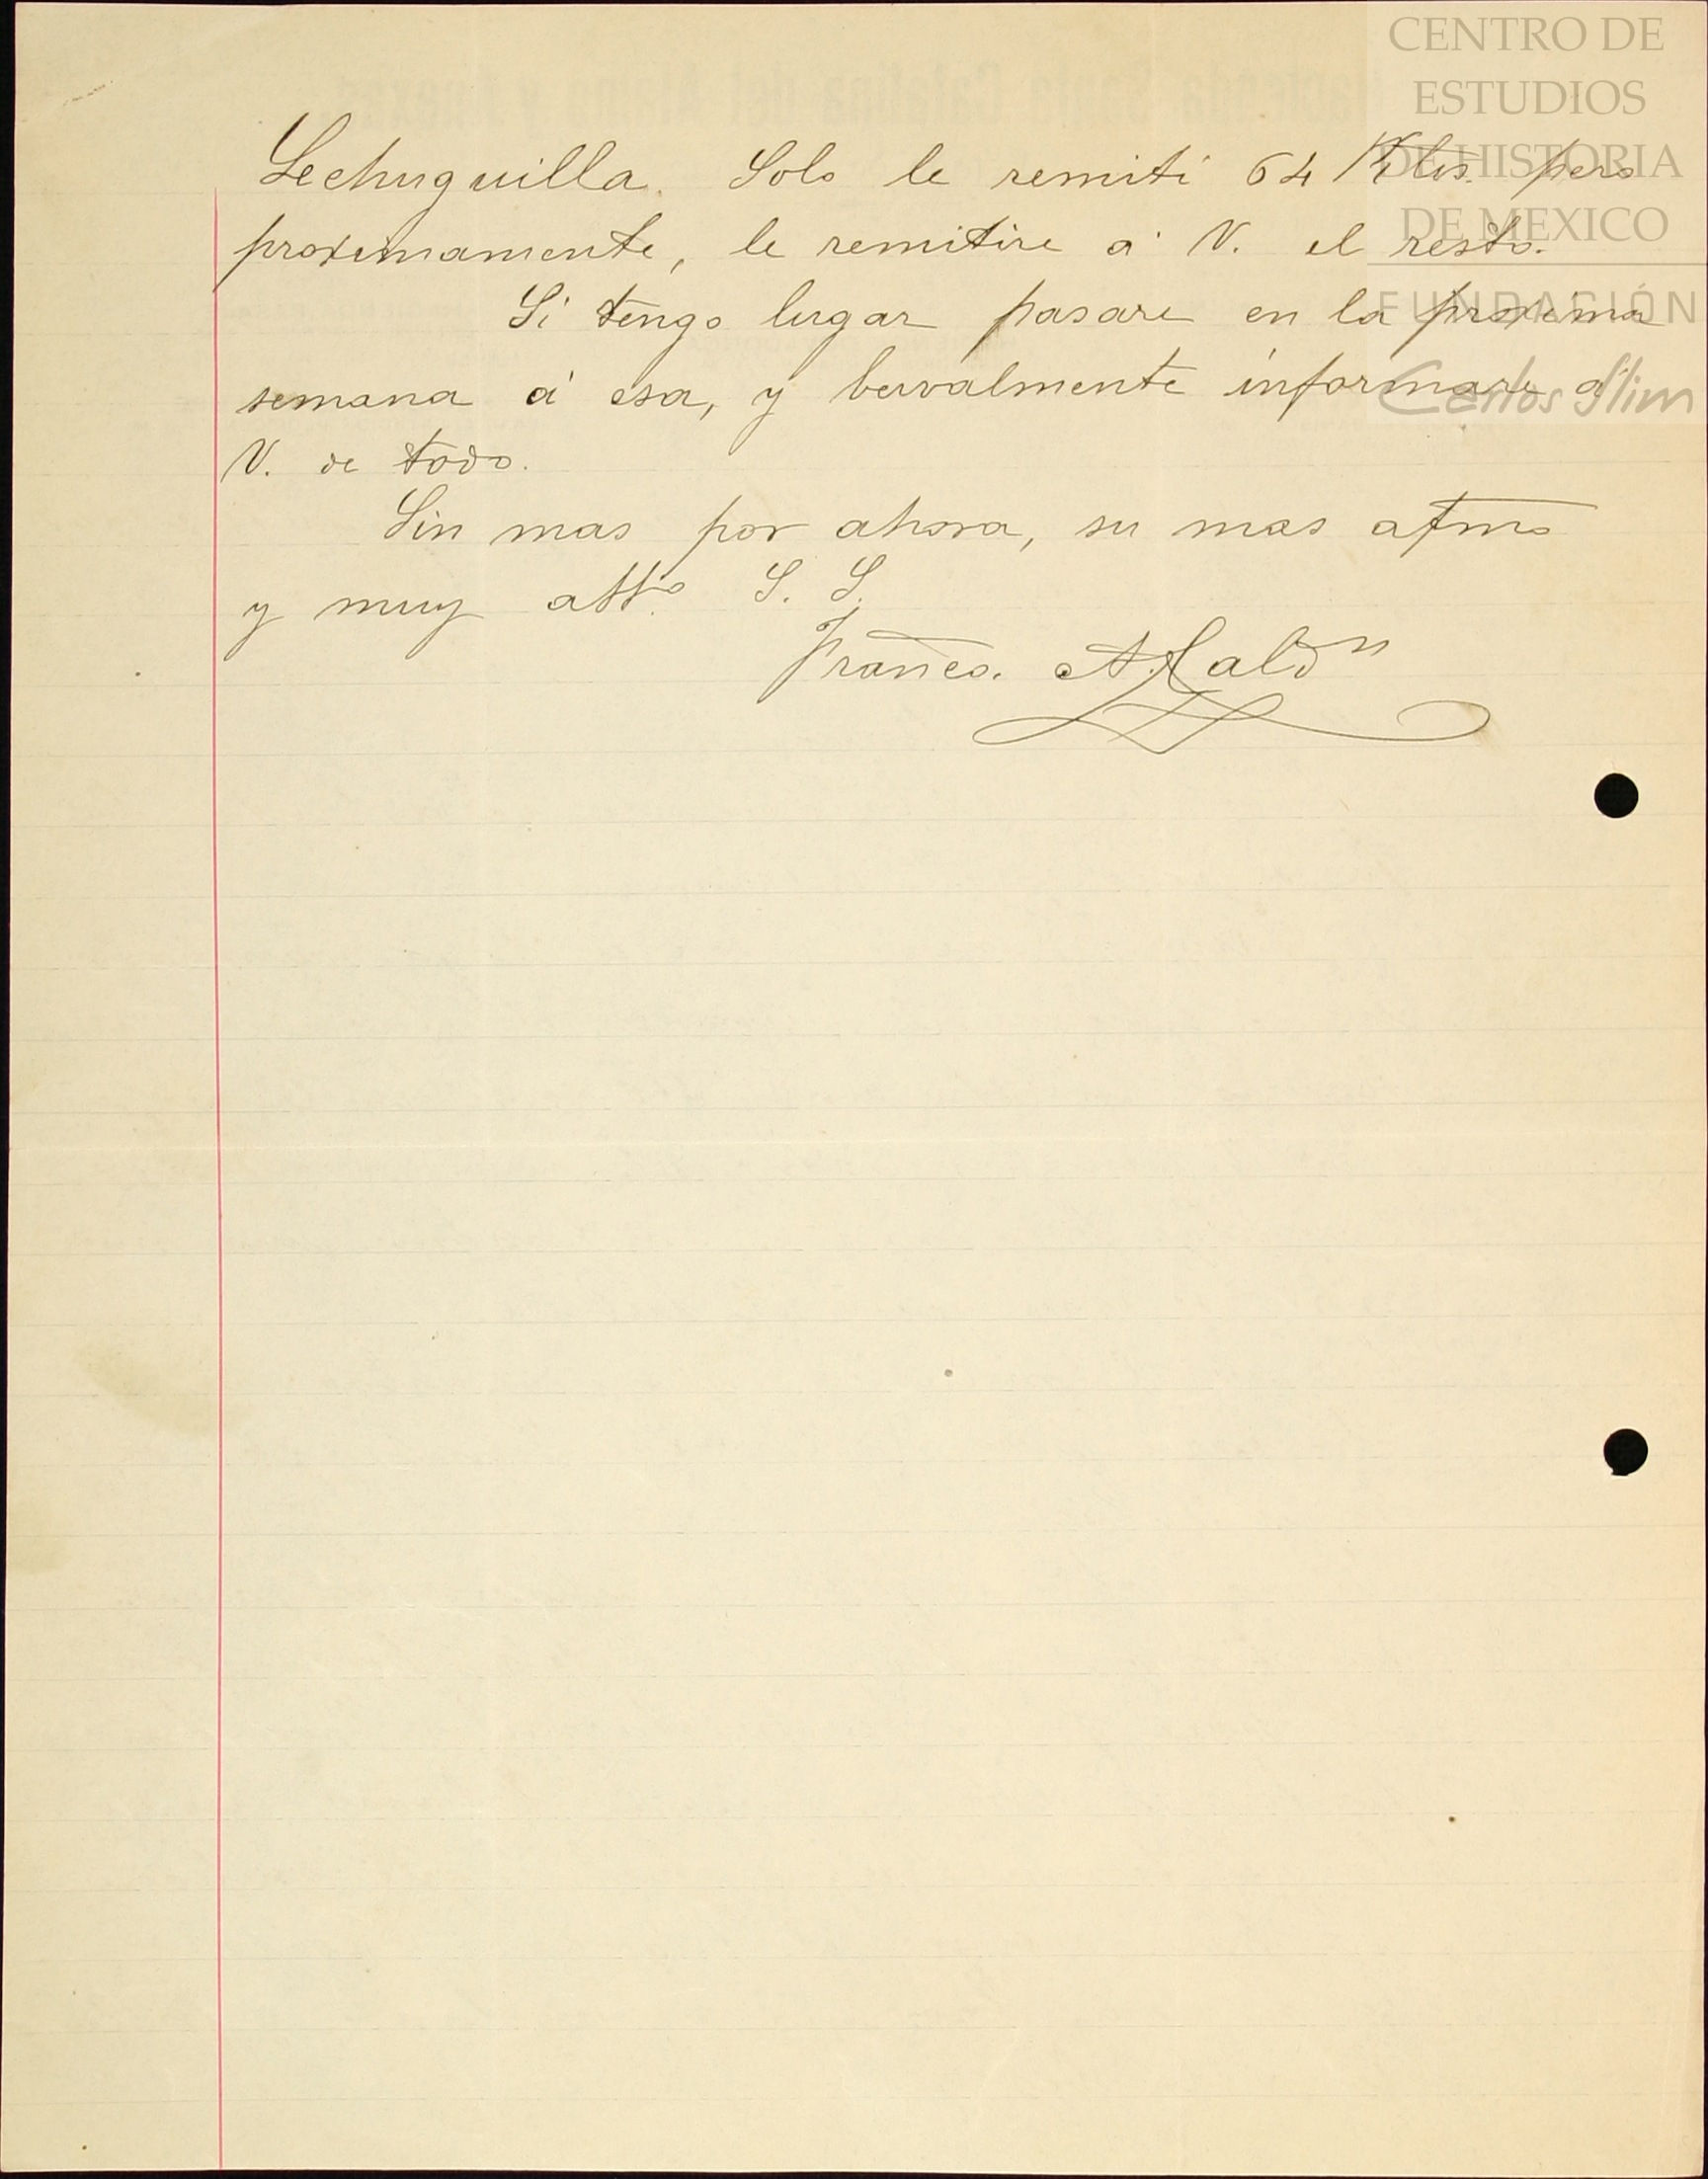 CENTRO DE
ESTUDIOS
DE HISTORIA
DE MEXICO
FUNDACIÓN
Carlos Slim
Lechuguilla. Solo le remiti 64 Klos. pero
proximamente, le remitire á V. el resto.
Si tengo lugar pasare en la proxima
semana á esa, y bervalmente informare á
V. de todo.
Sin mas por ahora, su mas afmo
y muy atto. S. S.
Franco. A.